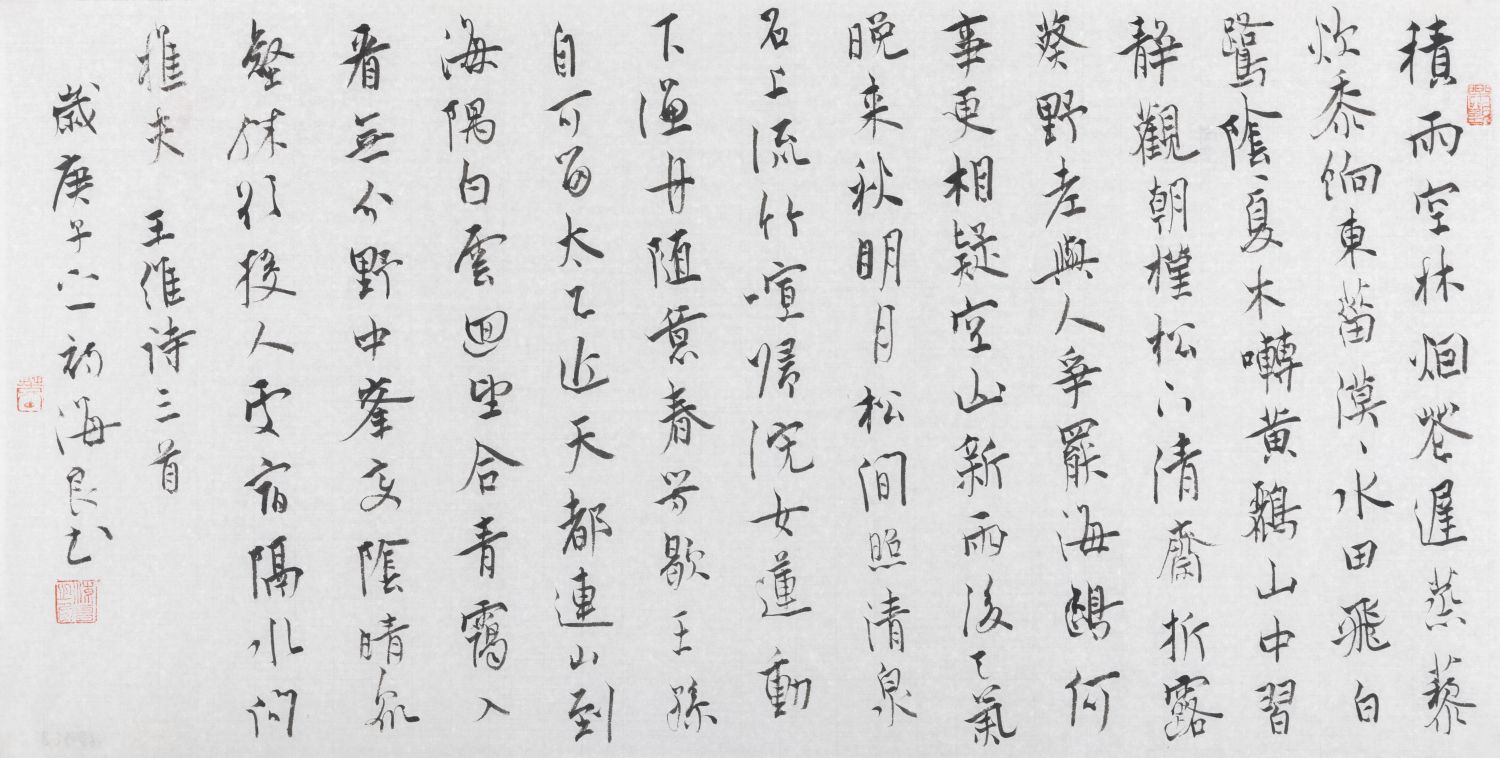 積雨空林烟遲蒸藜
炊黍餉東菑漠、水田飛白
鷺陰、夏木囀黄鸝山中習
靜觀朝槿松下清齋折露
葵野老與人爭罷海鷗何
事更相疑空山新雨後天氣
晚来秋明月松間照清泉
石上流竹喧歸浣女蓮動
下漁舟随意春芳歇王孫
自可留太乙近天都連山到
海隅白雲迴望合青靄入
看無分野中峯变陰晴衆
壑殊欲投人處宿隔水問
樵夫 王維诗三首
歲庚子初海良书